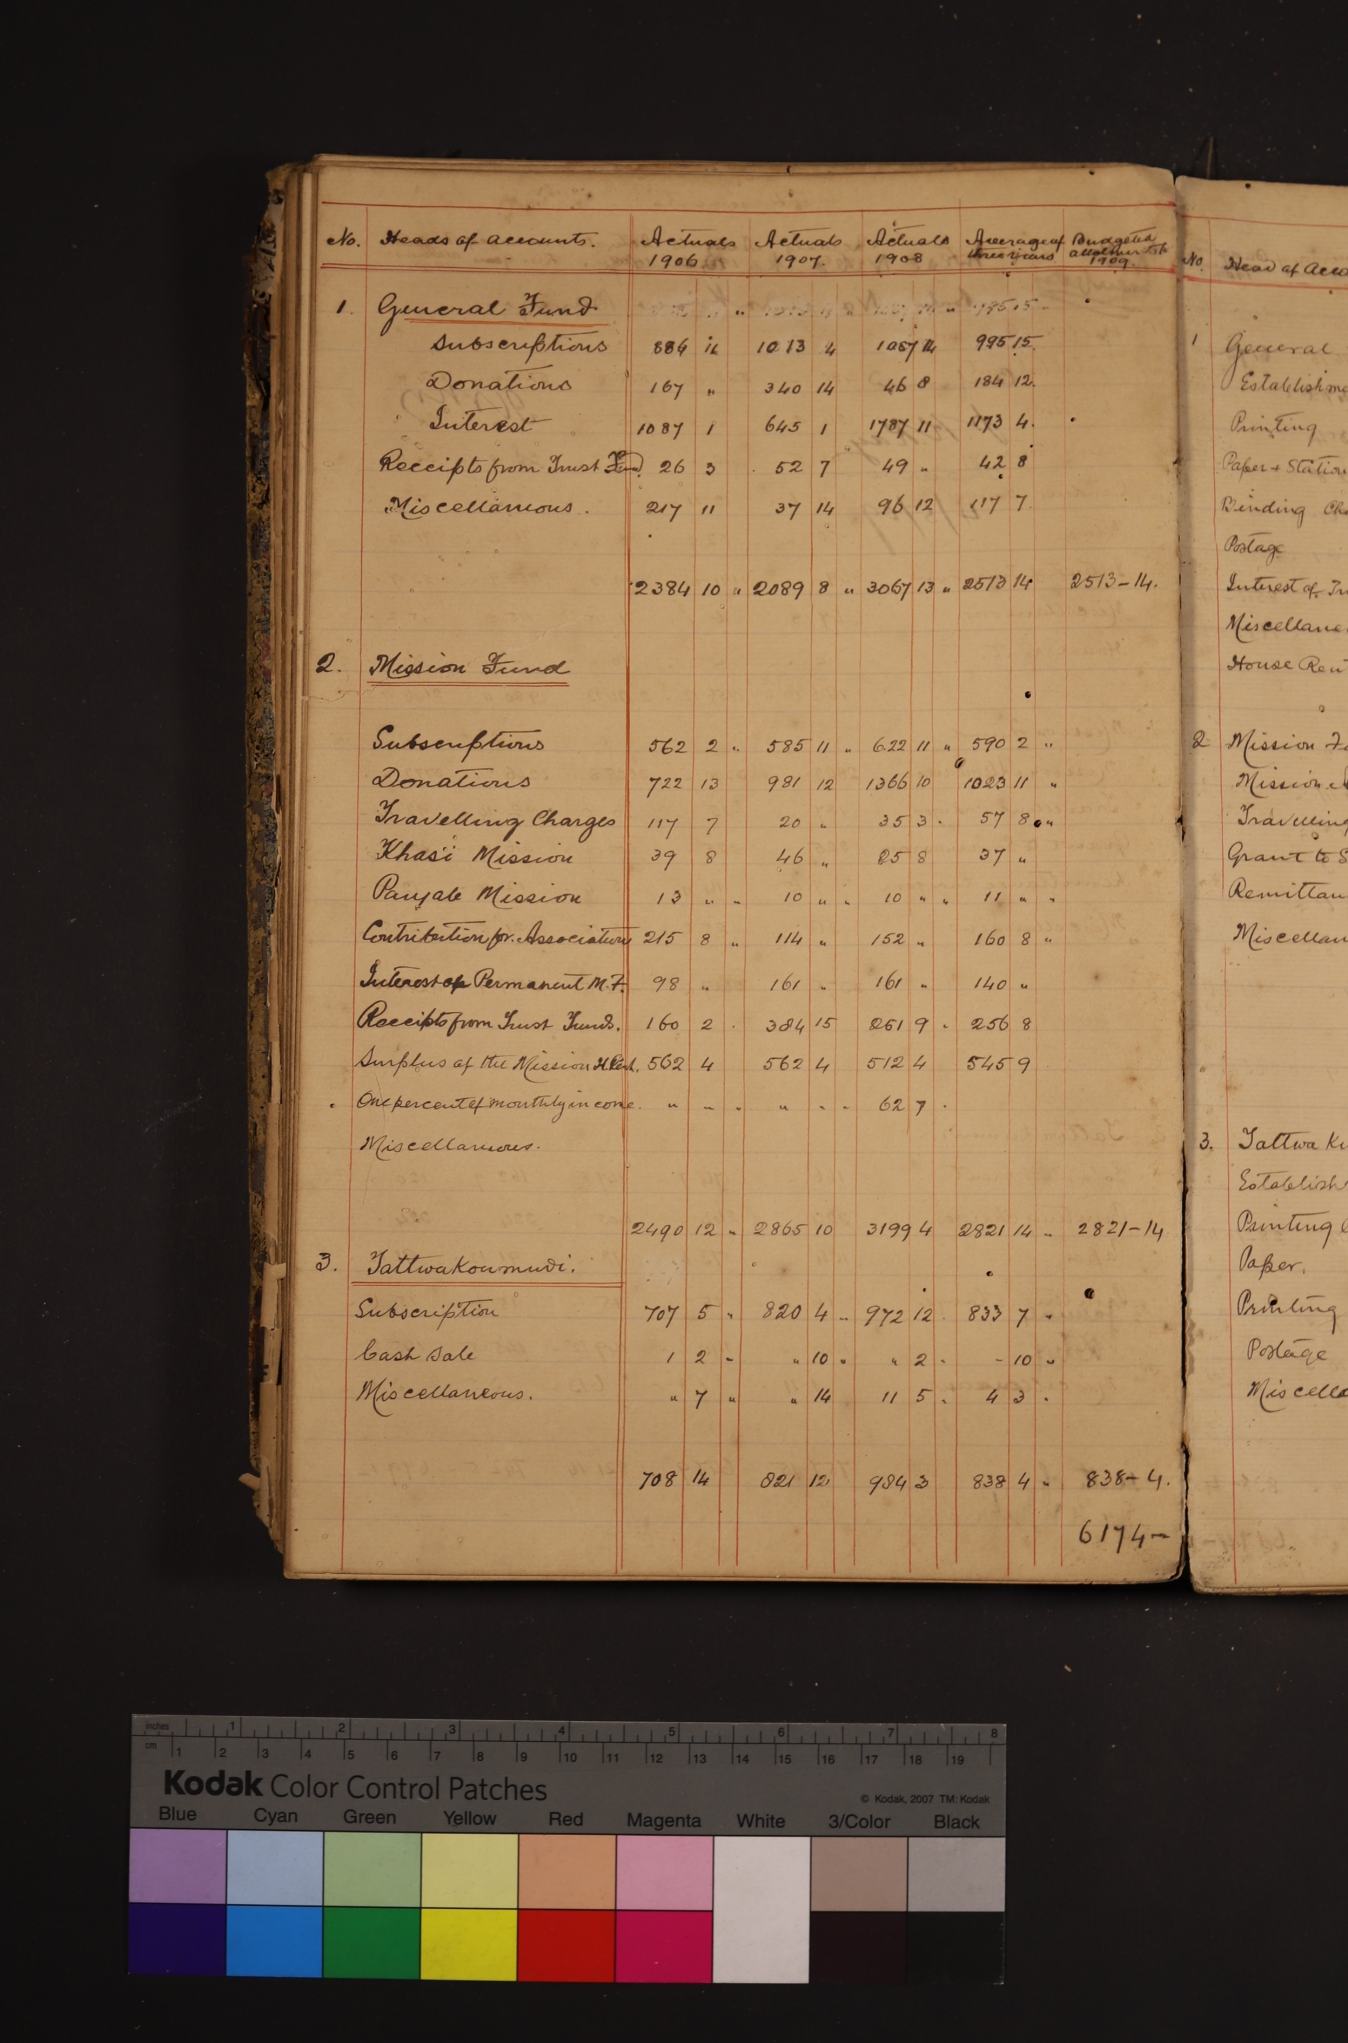 No. Heads of accounts. Actuals 1906. Actuals 1907. Actuals 1908 Average of three years Budgeted allotments 1909
1. General Fund
Subscriptions 886 11 1013 4 1087 14 995 15.
Donations 167 " 340 14 46 8 184 12.
Interest 1087 1 645 1 1787 11 1173 4.
Receipts from Trust Fund 26 3 52 7 49 " 42 8
Miscellaneous. 217 11 37 14 96 12 117 7
2384 10 " 2089 8 " 3067 13 " 2513 14 2513-14.
2. Mission Fund
Subscriptions 562 2 " 585 11 " 622 11 " 590 2 "
Donations 722 13 981 12 1366 10 1023 11 "
Travelling Charges 117 7 20 " 35 3 57 8 "
Khasi Mission 39 8 46 " 25 8 37 "
Panjab Mission 13 " " 10 " " 10 " " 11 " "
Contribution for Associations 215 8 " 114 " 152 " 160 8 "
Interest of Permanent M.F. 98 " 161 " 161 " 140 "
Receipts from Trust Funds. 160 2 384 15 261 9 256 8
Surplus of the Mission 562 4 562 4 512 4 545 9
One percent of monthly income. " " " " " " 62 7
Miscellaneous.
2490 12 " 2865 10 3199 4 2821 14 " 2821-14
3. Tattwakoumudi.
Subscription 707 5 " 820 4 " 972 12 833 7 "
Cash Sale 1 2 " " 10 " " 2 " - 10 "
Miscellaneous. " 7 " " 14 11 5 4 3
708 14 821 12 984 3 838 4 " 838-4.
6174-
No. Head of
1 General
Printing
Paper &
Binding
Postage
Interest of
House
2 Mission
Mission
Grant to
3. Tattwa
Printing
Paper.
Printing
Postage
inches 1 2 3 4 5 6 7 8
cm 1 2 3 4 5 6 7 8 9 10 11 12 13 14 15 16 17 18 19
Kodak Color Control Patches
© Kodak, 2007 TM: Kodak
Blue Cyan Green Yellow Red Magenta White 3/Color Black